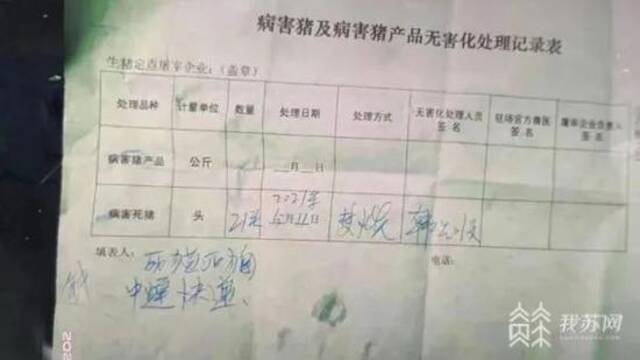 病害猪及病害猪产品无害化处理记录表
生猪定点屠宰企业：（盖章）
处理品种 计量单位 数量 处理日期 处理方式 无害化处理人员签名 驻场官方兽医签名 屠宰企业负责人签名
病害猪产品 公斤 __月__日
病害死猪 头 21头 2021年12月12日 焚烧 韩
填表人：
电话：
中 快递
我苏网